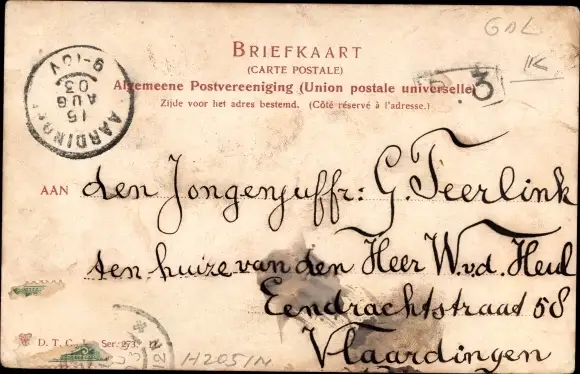 GDL
BRIEFKAART
(CARTE POSTALE)
Algemeene Postvereeniging (Union postale universelle)
Zijde voor het adres bestemd. (Côté réservé à l'adresse.)
3
15
AUG
03
9-10V
AAN den Jongenjuffr: G. Teerlink
ten huize van den Heer W.v.d. Heul
Eendrachtstraat 58
Vlaardingen
D. T. C., L. Ser. 273.
H2051N